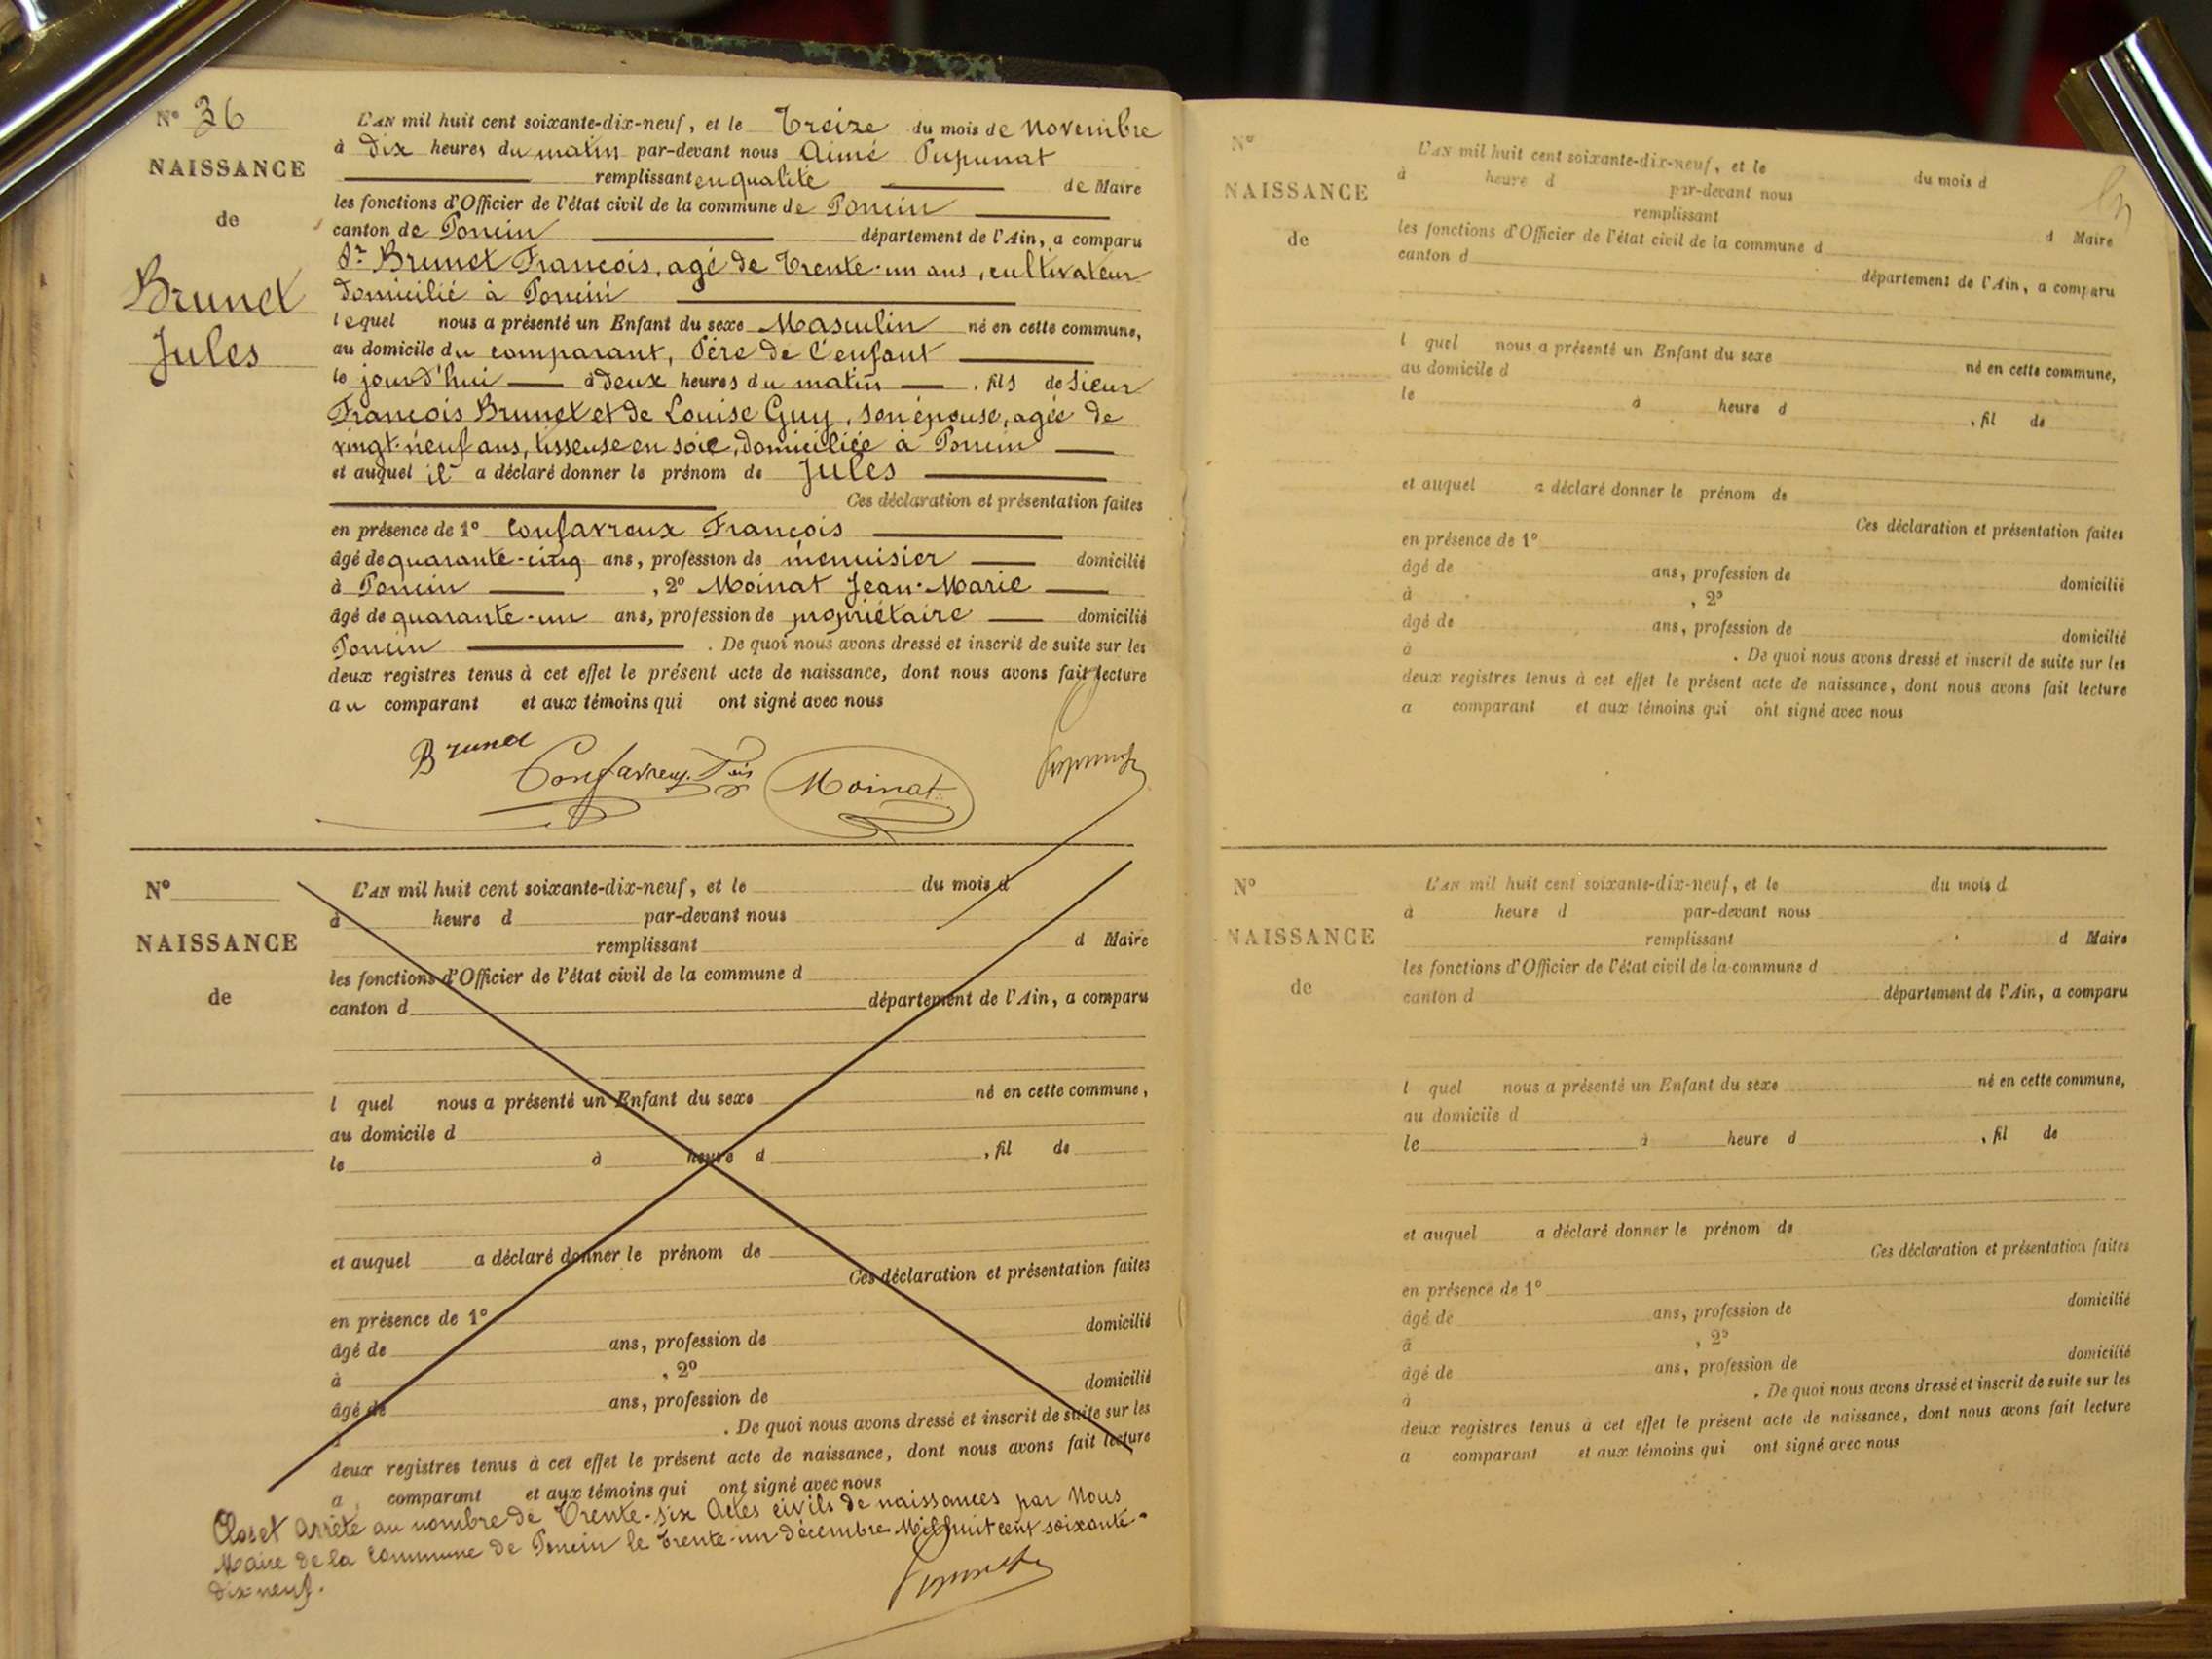 N° 36
NAISSANCE
de
Brunet
Jules
L'AN mil huit cent soixante-dix-neuf, et le Treize du mois de Novembre
à Dix heures du matin par-devant nous Aimé Pupunat
remplissant en qualité de Maire
les fonctions d'Officier de l'état civil de la commune de Poncin
canton de Poncin département de l'Ain, a comparu
Sr Brunet François, agé de Trente-un ans, cultivateur
domicilié à Poncin
lequel nous a présenté un Enfant du sexe Masculin né en cette commune,
au domicile du comparant, Père de l'enfant
le jourd'hui à Deux heures du matin , fils de Sieur
François Brunet et de Louise Guy, son épouse, agée de
vingt-neuf ans, tisseuse en soie, domiciliée à Poncin
et auquel il a déclaré donner le prénom de Jules
Ces déclaration et présentation faites
en présence de 1° Confavreux François
âgé de quarante-cinq ans, profession de menuisier domicilié
à Poncin , 2° Moinat Jean-Marie
âgé de quarante-un ans, profession de propriétaire domicilié
Poncin . De quoi nous avons dressé et inscrit de suite sur les
deux registres tenus à cet effet le présent acte de naissance, dont nous avons fait lecture
au comparant et aux témoins qui ont signé avec nous
Brunet
Confavreux Fois
Moinat
Pupunat
N°
NAISSANCE
de
L'AN mil huit cent soixante-dix-neuf, et le du mois d
à heure d par-devant nous
remplissant d Maire
les fonctions d'Officier de l'état civil de la commune d
canton d département de l'Ain, a comparu
l quel nous a présenté un Enfant du sexe né en cette commune,
au domicile d
le à heure d , fil de
et auquel a déclaré donner le prénom de
Ces déclaration et présentation faites
en présence de 1°
âgé de ans, profession de domicilié
à , 2°
âgé de ans, profession de domicilié
à . De quoi nous avons dressé et inscrit de suite sur les
deux registres tenus à cet effet le présent acte de naissance, dont nous avons fait lecture
a comparant et aux témoins qui ont signé avec nous
Clos et Arrêté au nombre de Trente-Six Actes civils de naissances par Nous
Maire de la Commune de Poncin le trente-un décembre Mil huit cent soixante-
dix-neuf.
Pupunat
N°
NAISSANCE
de
L'AN mil huit cent soixante-dix-neuf, et le du mois d
à heure d par-devant nous
remplissant d Maire
les fonctions d'Officier de l'état civil de la commune d
canton d département de l'Ain, a comparu
l quel nous a présenté un Enfant du sexe né en cette commune,
au domicile d
le à heure d , fil de
et auquel a déclaré donner le prénom de
Ces déclaration et présentation faites
en présence de 1°
âgé de ans, profession de domicilié
à , 2°
âgé de ans, profession de domicilié
à . De quoi nous avons dressé et inscrit de suite sur les
deux registres tenus à cet effet le présent acte de naissance, dont nous avons fait lecture
a comparant et aux témoins qui ont signé avec nous
N°
NAISSANCE
de
L'AN mil huit cent soixante-dix-neuf, et le du mois d
à heure d par-devant nous
remplissant d Maire
les fonctions d'Officier de l'état civil de la commune d
canton d département de l'Ain, a comparu
l quel nous a présenté un Enfant du sexe né en cette commune,
au domicile d
le à heure d , fil de
et auquel a déclaré donner le prénom de
Ces déclaration et présentation faites
en présence de 1°
âgé de ans, profession de domicilié
à , 2°
âgé de ans, profession de domicilié
à . De quoi nous avons dressé et inscrit de suite sur les
deux registres tenus à cet effet le présent acte de naissance, dont nous avons fait lecture
a comparant et aux témoins qui ont signé avec nous